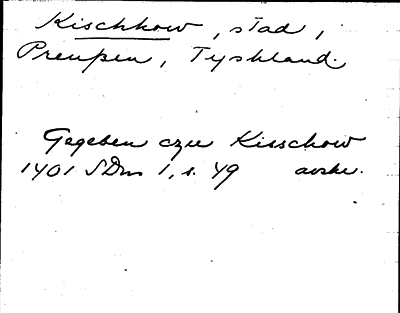 Kischkow, stad i
Preußen, Tyskland.
Gegeben czu Kisschow
1401 SDns 1, s. 49 avskr.